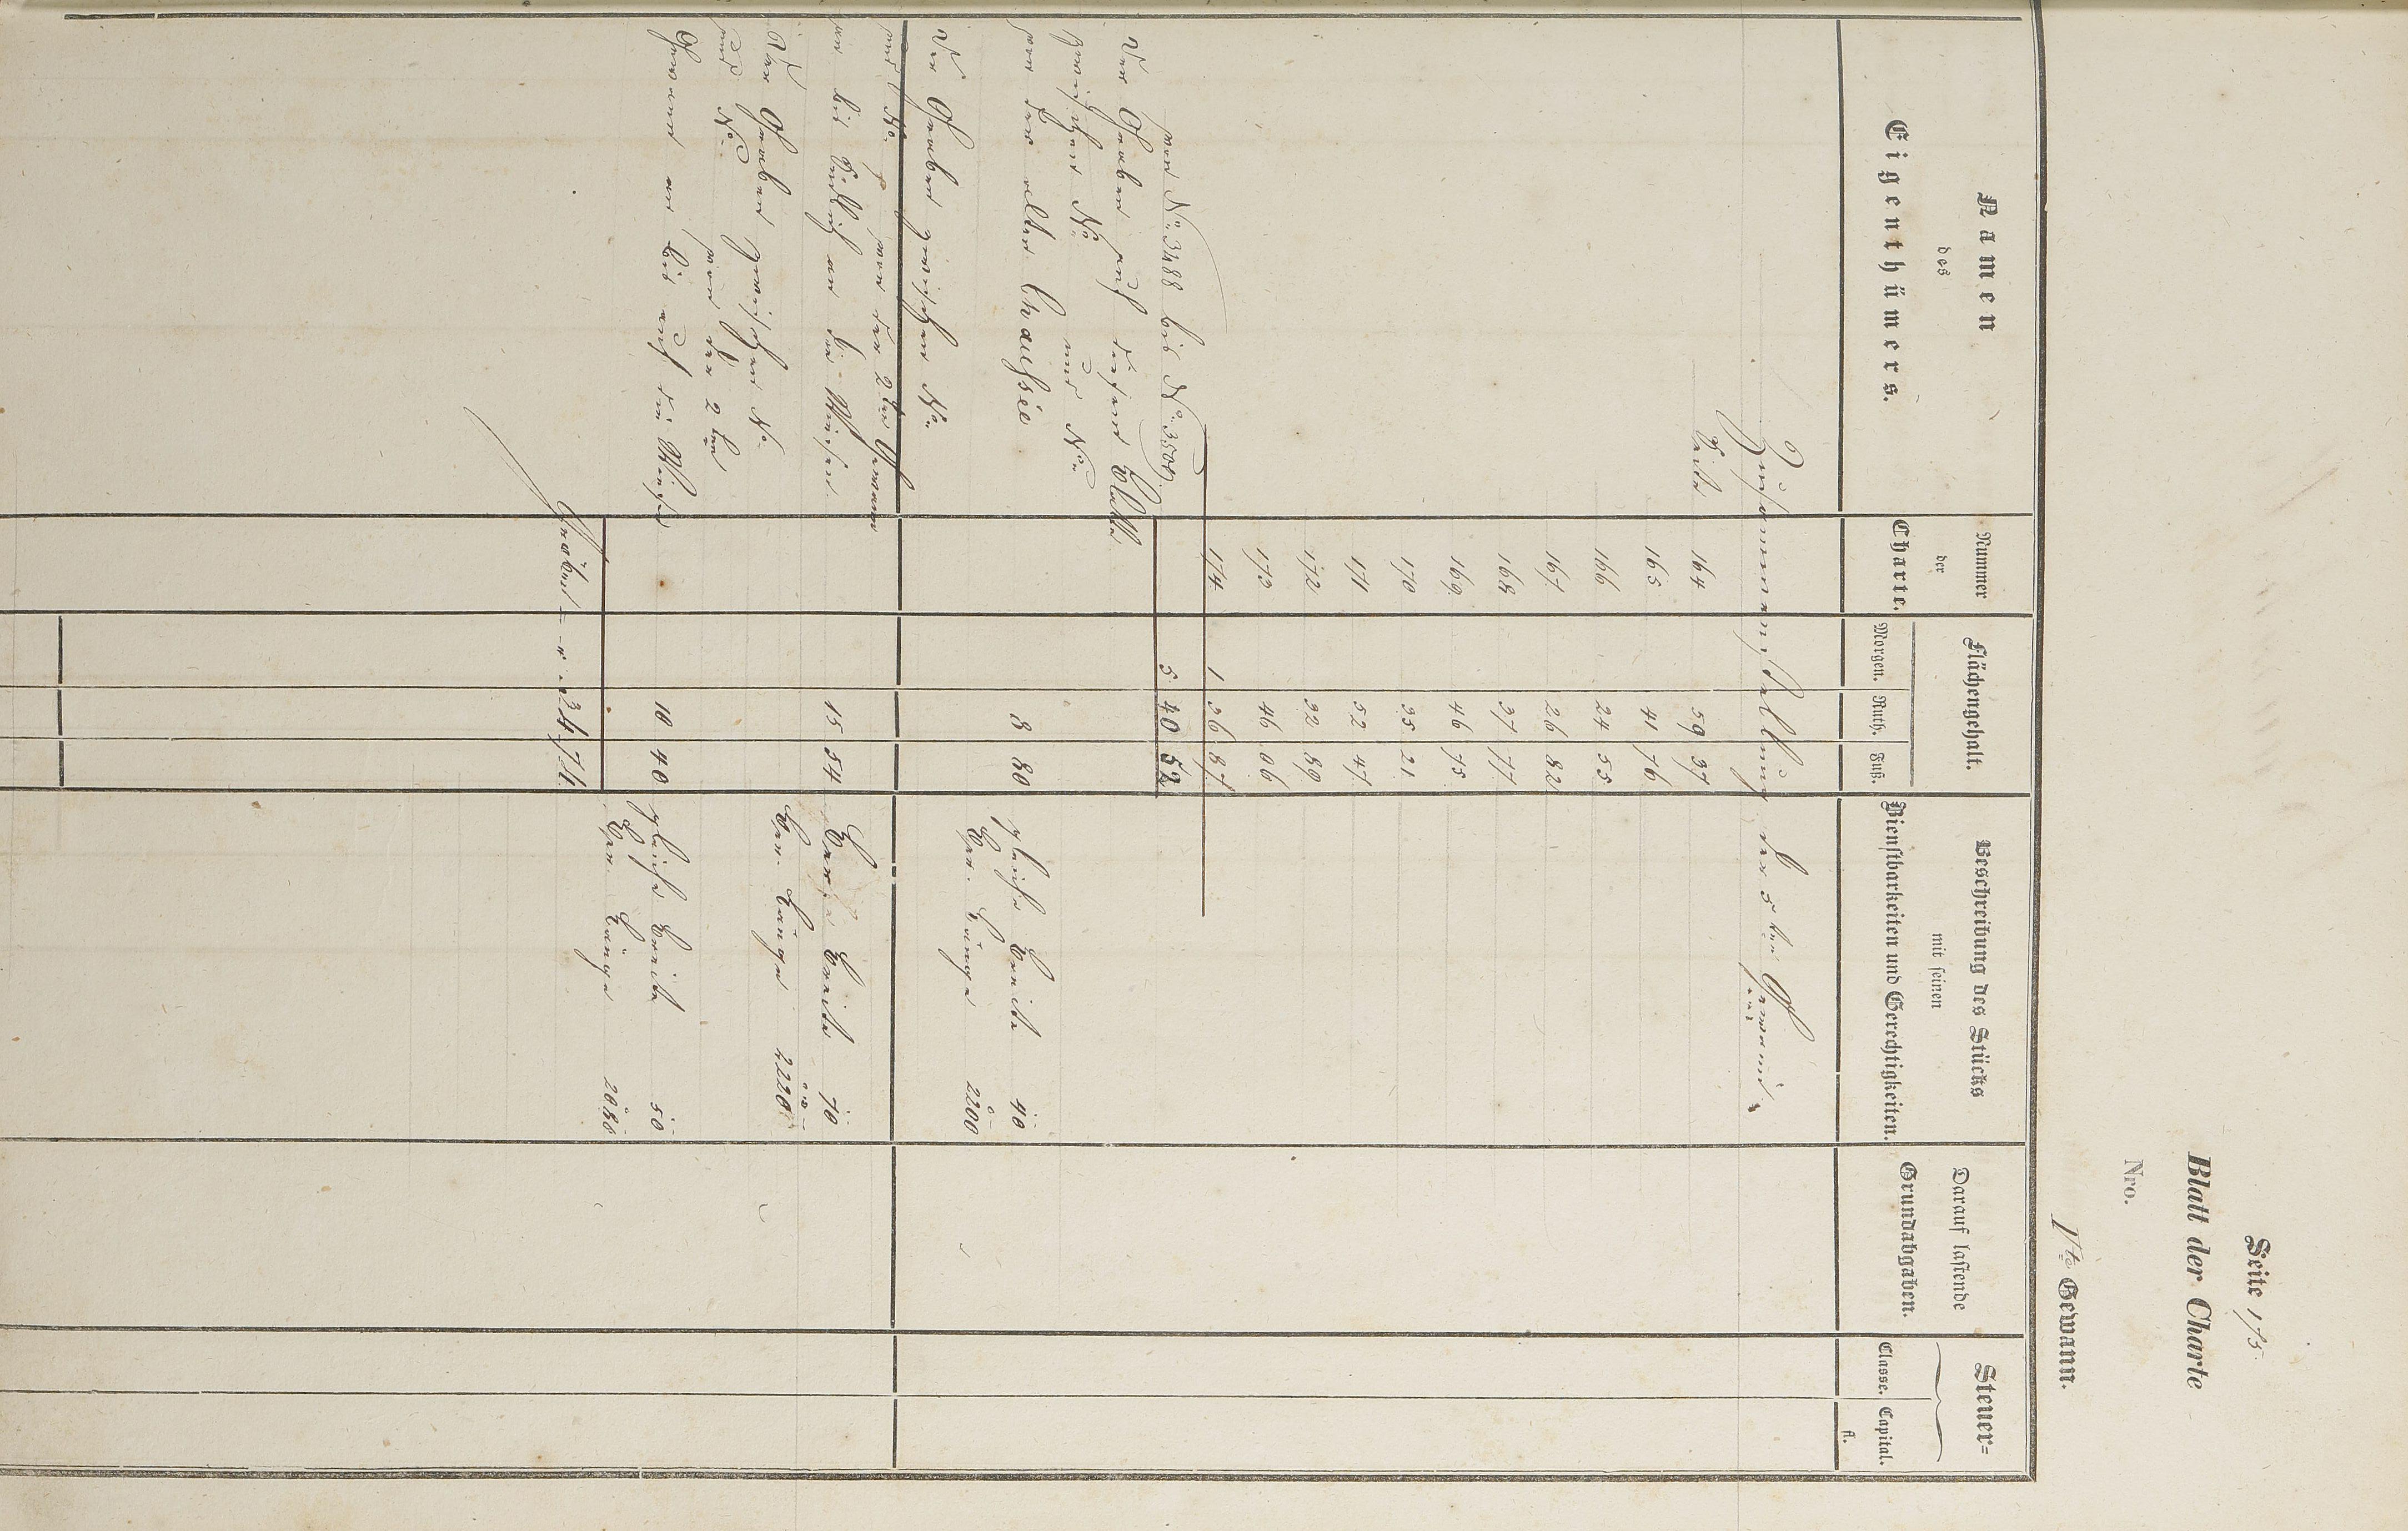 Seite 175.
Blatt der Charte
Nro.
1te Gewann.
Namen
des
Eigenthümers.
Nummer
der
Charte.
Flächengehalt.
Morgen. Ruth. Fuß.
Beschreibung des Stücks
mit seinen
Dienstbarkeiten und Gerechtigkeiten.
Darauf lastende
Grundabgaben.
Steuer=
Classe. Capital.
fl.
Zusammenstellung der 5ten Gewann
Seite 164 59 37
165 41 76
166 24 55
167 26 82
168 37 77
169 46 75
170 35 21
171 52 47
172 32 89
173 46 06
174 1 36 87
von No. 3488 bis No. 3504. 5 40 52
Der Graben auf diesem Blatt
zwischen No. und No.
von der alten Chaussée 8 80 gleiche Breite 40
Der. Länge 2200
Der Graben zwischen No.
und No. von der 2ten Gewann
an bis an die Wiesen 15 54 Breite 70
Der. Länge 2220
Der Graben zwischen No.
und No. von der 2ten
Gewann an bis auf die Wiesen 10 40 gleiche Breite 50
Der. Länge 2080
Gräben 34 74